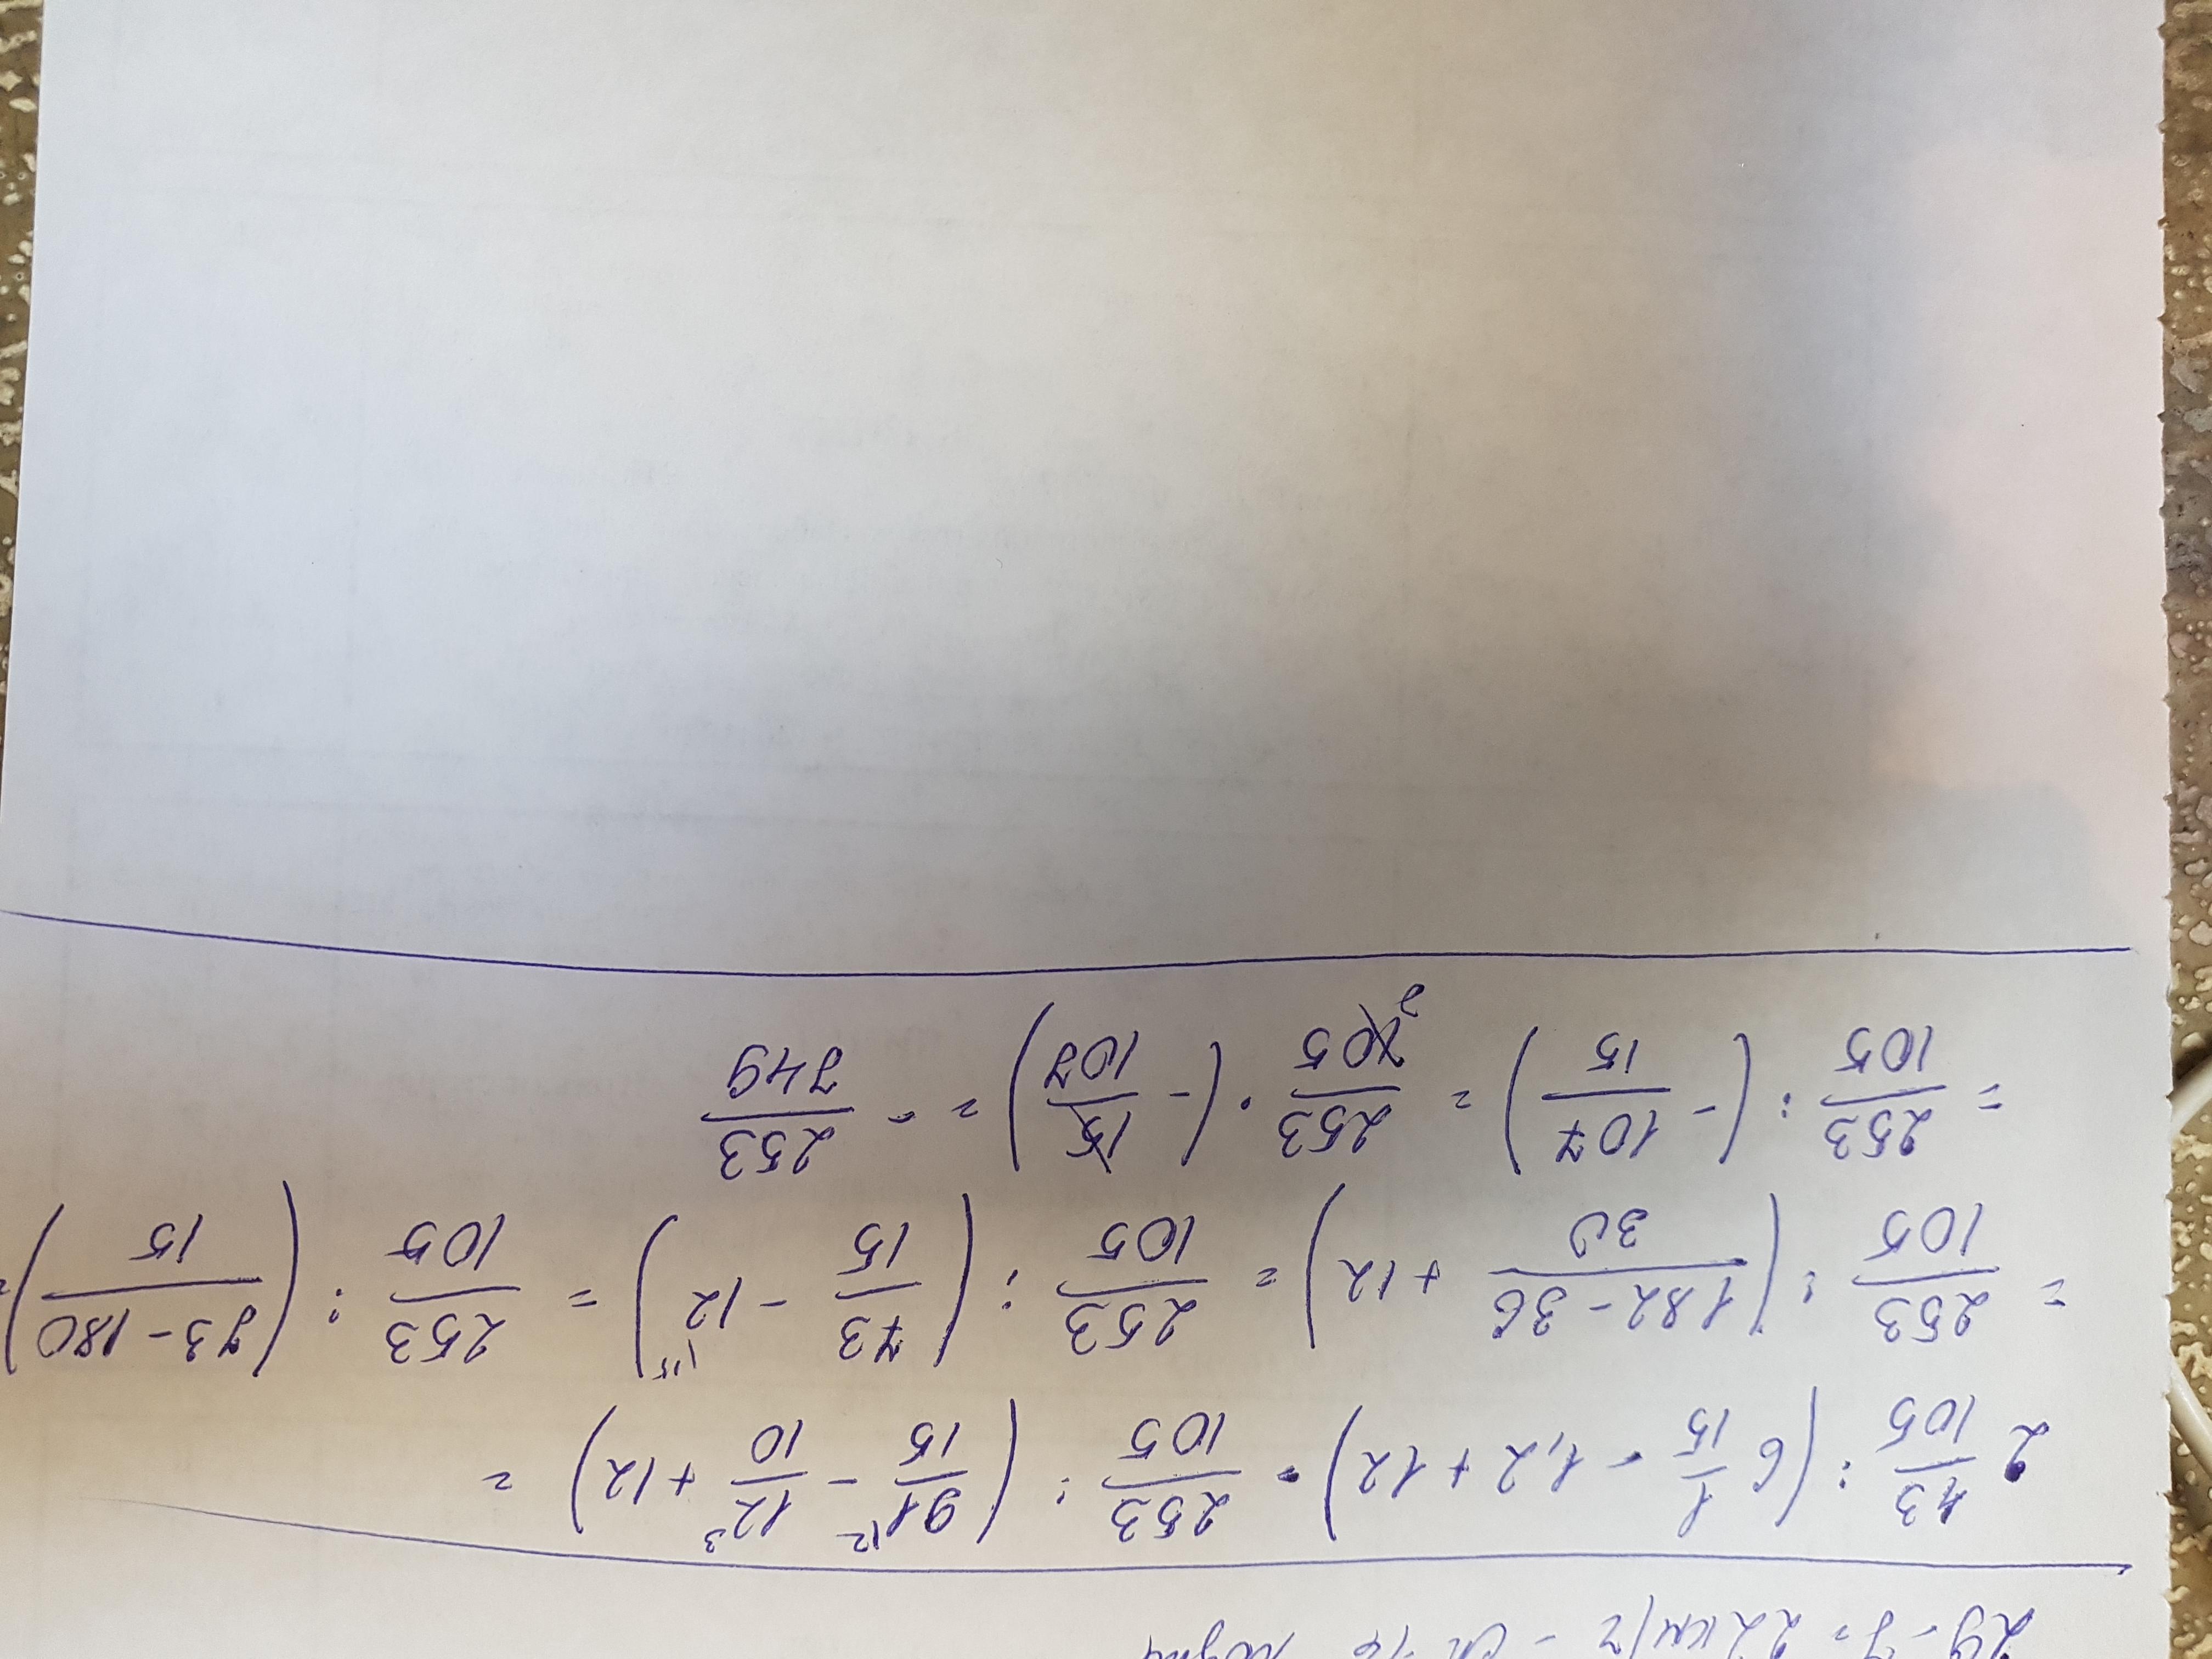 29 - 7 = 22 км/ч -
2 43/105 : (6 1/15 - 1,2 + 12) = 253/105 : (91/15 - 12/10 + 12) =
= 253/105 : ((182 - 36)/30 + 12) = 253/105 : (73/15 - 12) = 253/105 : ((73 - 180)/15) =
= 253/105 : (- 107/15) = 253/105 · (- 15/107) = - 253/749